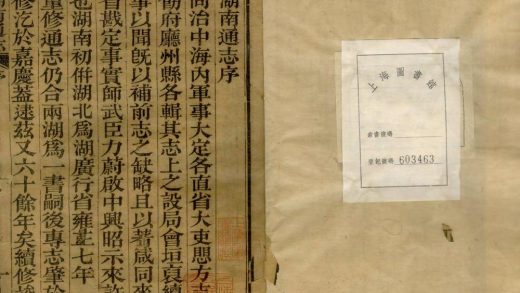 上海圖書館
索書號碼
登記號碼 603463
湖南通志序
同治中海內軍事大定各直省大吏方志
府廳州縣各輯其志上之設局會垣裒續
事以聞旣以補前志之缺略且以著咸同來
省戡定事實師武臣力蔚啟中興昭示來許
也湖南初併湖北爲湖廣行省雍正七年
重修通志仍合兩湖爲一書嗣後專志肇於
修汔於嘉慶葢逮茲又六十餘年矣續修